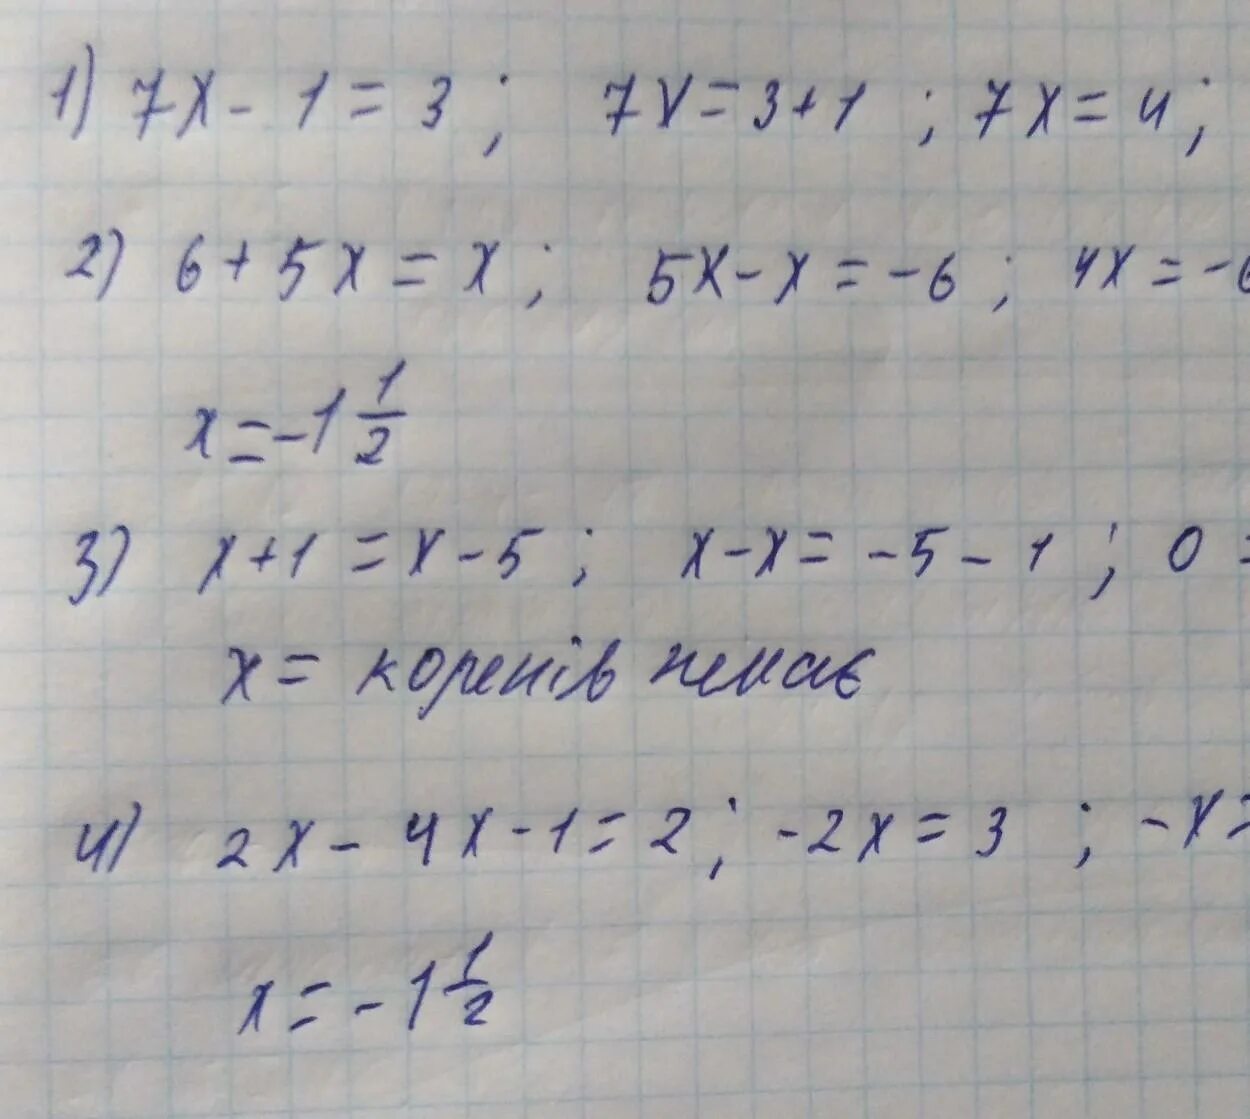 1) 7x - 1 = 3 ; 7x = 3 + 1 ; 7x = 4 ;
2) 6 + 5x = x ; 5x - x = -6 ; 4x = -6
x = -1 1/2
3) x + 1 = x - 5 ; x - x = -5 - 1 ; 0 =
x = коренів немає
4) 2x - 4x - 1 = 2 ; -2x = 3 ; -x =
x = -1 1/2